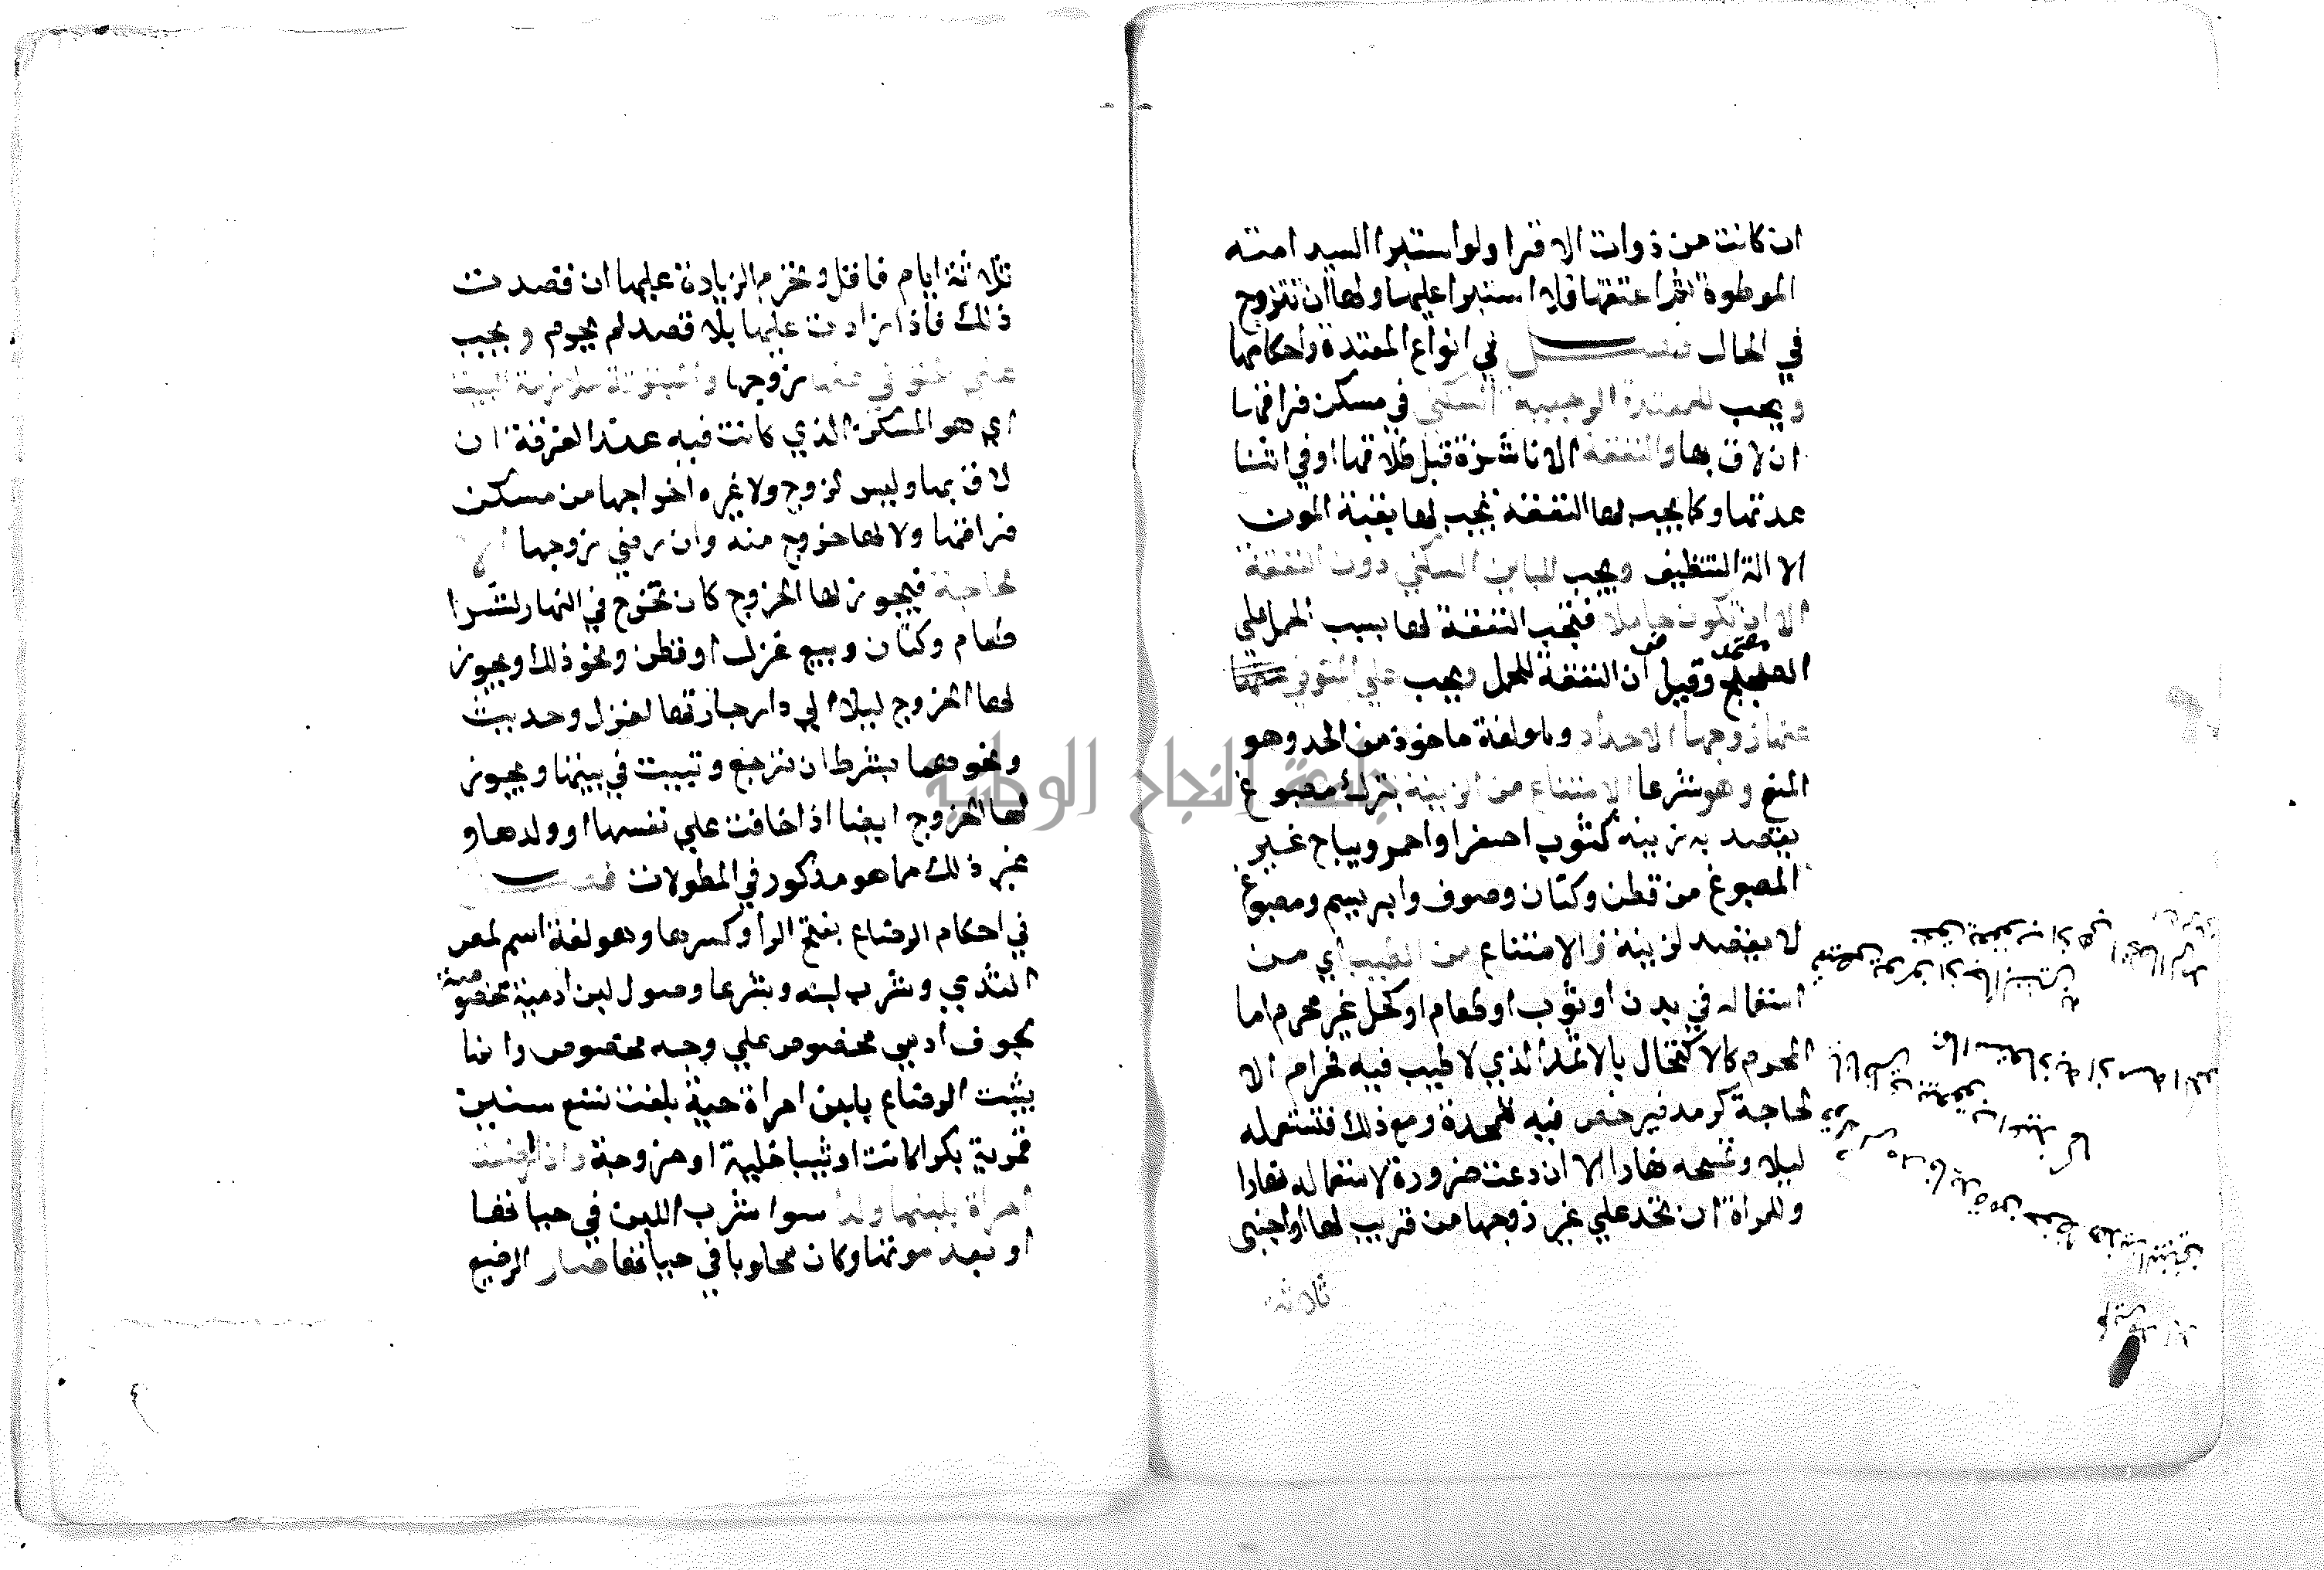 ان كانت من ذوات الاقرا ولو استبرا السيد امته
الموطوة ثم اعتقها فلا استبرا عليها ولها ان تتزوج
في الحال فصل في انواع المعتدة واحكامها
ويجب للمعتدة الرجعية السكني في مسكن فراقها
ان لاق بها والنفقة الا ناشزة قبل طلاقها او في اثنا
عدتها وكما يجب لها النفقة يجب لها بقية المون
الا الة التنظيف ويجب للباين السكني دون النفقة
الا ان تكون حاملا فتجب النفقة لها بسبب الحمل علي
الصحيح وقيل ان النفقة للحمل ويجب علي المتوفي عنها
عنها زوجها الاحداد وهو لغة ماخوذ من الحد وهو
المنع وهو شرعا الامتناع من الزينة بترك مصبوغ
يقصد به زينة كثوب اصفر او احمر ويباح غير
المصبوغ من قطن وكتان وصوف وابريسم ومصبوغ
لا يقصد لزينة والامتناع من الطيب اي من
استعماله في بدن او ثوب او طعام او كحل غير محرم اما
المحرم كالاكتحال بالاثمد الذي لا طيب فيه فحرام الا
لحاجة كرمد فيرخص فيه للمحدة ومع ذلك فتستعمله
ليلا وتمسحه نهارا الا ان دعت ضرورة لاستعماله نهارا
وللمراة ان تحد علي غير زوجها من قريب لها او اجنبي
ثلاثة
ثلاثة ايام فاقل وتحرم الزيادة عليها ان قصدت
ذلك فاذا زادت عليها بلا قصد لم يحرم ويجب
علي المتوفي عنها زوجها والمبتوتة ملازمة البيت
اي هو المسكن الذي كانت فيه عند الفرقة ان
لاق بها وليس لزوج ولا غيره اخراجها من مسكن
فراقها ولا لها خروج منه وان رضي زوجها الا
لحاجة فيجوز لها الخروج كان تخرج في النهار لشرا
طعام وكتان وبيع غزل او قطن ونحو ذلك ويجوز
لها الخروج ليلا الي دار جارتها لغزل وحديث
ونحوهما بشرط ان ترجع وتبيت في بيتها ويجوز
لها الخروج ايضا اذا خافت علي نفسها او ولدها و
غير ذلك مما هو مذكور في المطولات فصل
في احكام الرضاع بفتح الرا وكسرها وهو لغة اسم لمص
الثدي وشرب لبنه وشرعا وصول لبن ادمية مخصوصة
لجوف ادمي مخصوص علي وجه مخصوص وانما
يثبت الرضاع بلبن امراة حية بلغت تسع سنين
قمرية بكرا كانت او ثيبا خلية او مزوجة واذا ارضعت
امراة بلبنها ولدا سوا شرب اللبن في حياتها
او بعد موتها وكان محلوبا في حياتها صار الرضيع
جامعة النجاح الوطنية